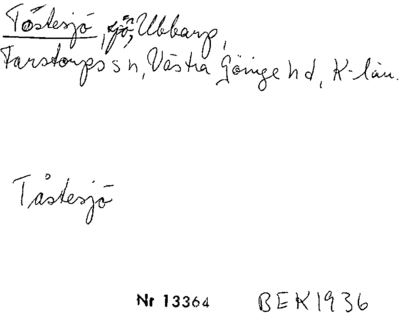 Tåstesjö, sjön, Ubbarp,
Farstorps sn, Västra Göinge hd, K-län.
Tåstesjö
Nr 13364 BEK1936